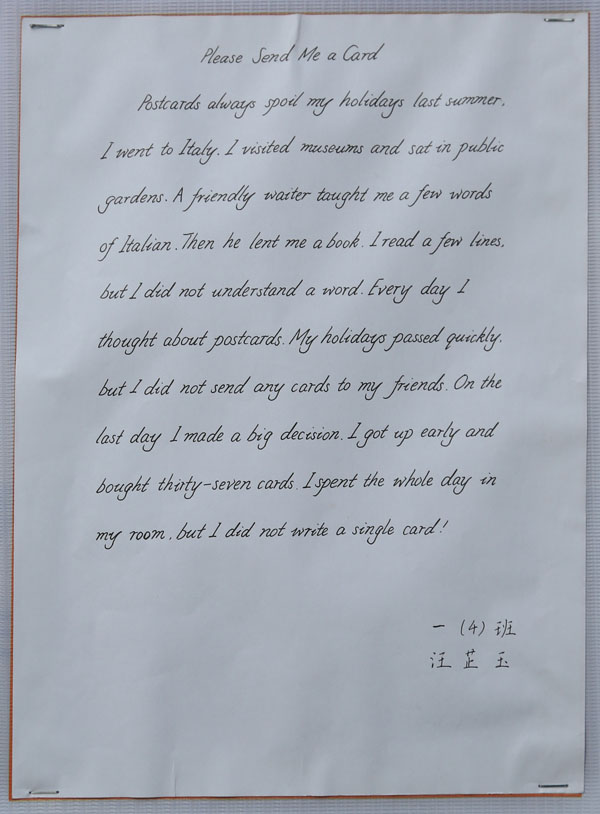 Please Send Me a Card
Postcards always spoil my holidays last summer,
I went to Italy. I visited museums and sat in public
gardens. A friendly waiter taught me a few words
of Italian. Then he lent me a book. I read a few lines,
but I did not understand a word. Every day I
thought about postcards. My holidays passed quickly,
but I did not send any cards to my friends. On the
last day I made a big decision. I got up early and
bought thirty-seven cards. I spent the whole day in
my room, but I did not write a single card!
一 (4) 班
汪 芷 玉